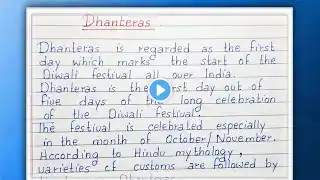 Dhanteras
Dhanteras is regarded as the first
day which marks the start of the
Diwali festival all over India.
Dhanteras is the first day out of
five days of the long celebration
of the Diwali festival.
The festival is celebrated especially
in the month of October/November.
According to Hindu mythology,
varieties of customs are followed by